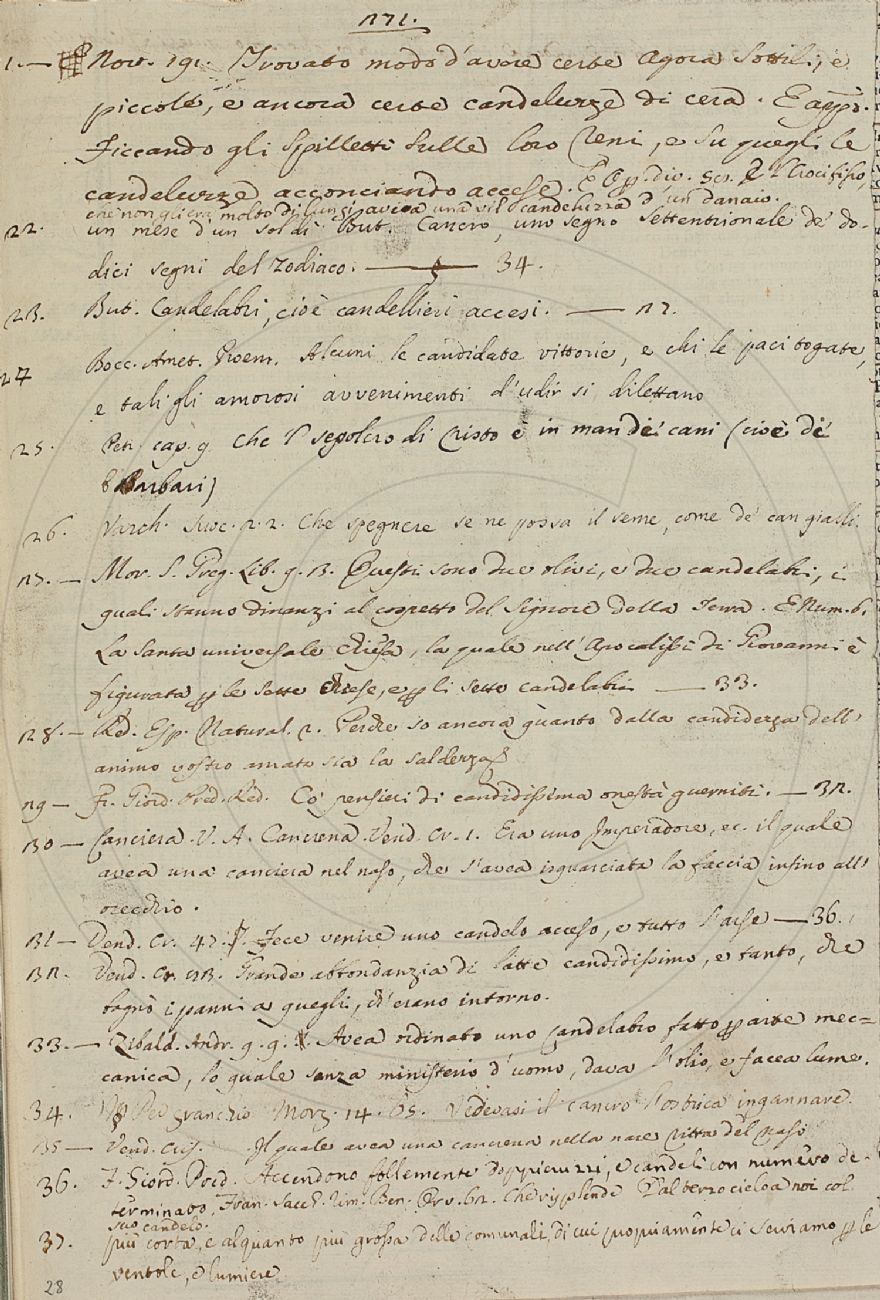 171.
1. — Nov. 191. Trovato modo d'avere certe Agora Sottili, e
piccole, e ancora certe candeluzze di cera. E app.
Ficcando gli Spilletti Sulle loro Reni, e Su quegli le
candeluzze acconciando accese. E Op. div. Crocifisso,
che non gli era molto di lungi, aveva una vil candeluzza d'un danaio.
22. un mese d'un soldi But. Cancro, uno segno Settentrionale de' do-
dici segni del Zodiaco. — 34.
23. But. Candelabri, cioè candellieri accesi. — 17.
24 Bocc. Amet. Proem. Alcuni le candidate vittorie, e chi le paci togate,
e tali gli amorosi avvenimenti d'udir si dilettano
25. Petr. cap. 9. Che 'l sepolcro di Cristo è in man de' cani (cioè de'
Barbari)
26. Varch. Suoc. 2. 2. Che spegnere se ne possa il seme, come de' can gialli.
127. — Mor. S. Greg. Lib. 9. 13. Questi sono due olivi, e due candelabri, i
quali stanno dinanzi al cospetto del Signore della Terra. E Num. 6.
La Santa universale Chiesa, la quale nell'Apocalissi di Giovanni è
figurata p le sette Chiese, e p li sette candelabri — 33.
128. — Red. Esp. Natural. 2. Perchè so ancora quanto dalla candidezza dell'
animo vostro amata sia la saldezza
129 — Fr. Giord. Pred. Red. Co' pensieri di candidissima onestà guerniti. — 32.
130 — Canciera. V. A. Cancrena. Vend. Cr. 1. Era uno Imperadore, ec. il quale
avea una canciera nel naso, che l'avea isguarciata la faccia insino all'
orecchio.
131 — Vend. Cr. 47. Fece venire uno candelo acceso, e tutto l'arse — 36.
132. Vend. Cr. Grande abbondanzia di latte candidissimo, e tanto, che
bagnò i panni a quegli, ch'erano intorno.
33. — Zibald. Andr. 9. 9. Avea ordinato uno Candelabro fatto p arte mec=
canica, lo quale sanza ministerio d'uomo, dava l'olio, e facea lume.
34. Granchio Morg. 14. 65. Vedevasi il cancro l'ostrica ingannare.
135 — Vend. Cris. Il quale avea una cancrena nella nare ritta del naso
36. F. Giord. Pred. Accendono follemente doppieruzzi, e candeli con numero de-
terminato. Fran. Sacch. Rim. Che risplende Dal terzo cielo a noi col
suo candelo.
37. più corta, e alquanto più grossa delle comunali, di cui propriamente ci serviamo p le
ventole, e lumiere
28